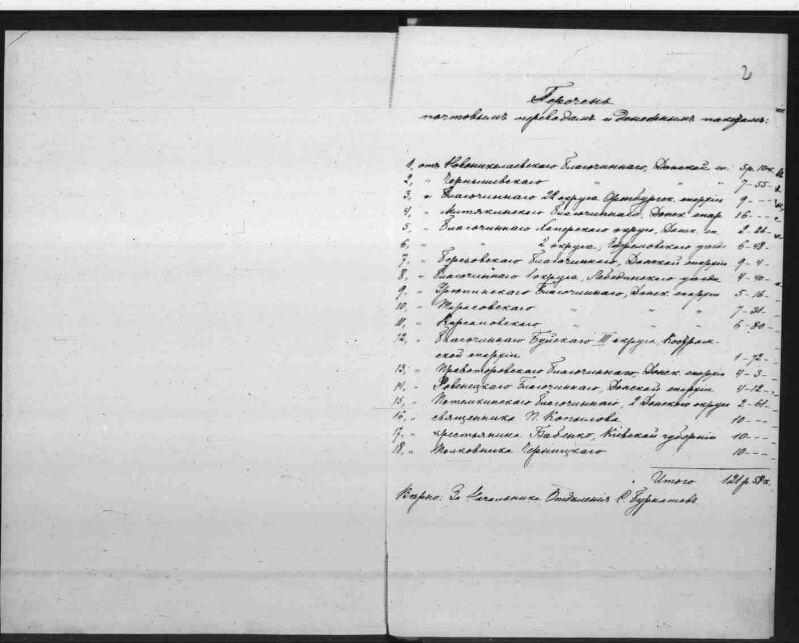 2
Перечень
почтовымъ переводамъ и денежнымъ пакетамъ:
1, отъ Новониколаевскаго Благочиннаго, Донской еп. 5 р. 10 к.
2, „ Чернышевскаго „ „ „ 7-55-
3, „ Благочиннаго 22 округа Оренбургск. епархіи 9 - -
4, „ Митякинскаго Благочиннаго, Донск. епар 16 - - -
5, „ Благочиннаго Хоперскаго округа, Донск. еп. 2-26-
6, „ „ 2 округа, 6-48-
7, „ Березовскаго Благочиннаго, Донской епархіи 9-4-
8, „ Благочиннаго 1 округа, Лебединскаго уѣзда 4-40-
9, „ Урюпинскаго Благочиннаго, Донск. епархіи 5-16-
10, „ Тарасовскаго „ „ „ 7-31-
11, „ Кирсановскаго „ „ „ 6-80-
12, „ Благочиннаго Буйскаго III округа, Костром-
ской епархіи 1-72-
13, „ Правоторовскаго Благочиннаго, Донск. епархіи 4-3-
14, „ Ровенецкаго Благочиннаго, Донской епархіи 4-12-
15, „ Потемкинскаго Благочиннаго, 2 Донского округа 2-61-
16, „ священника П. Копылова 10 - - -
17, „ крестьянина Бабенко, Кіевской губерніи 10 - - -
18, „ Черницкаго 10 - - -
Итого 121 р. 58 к.
Вѣрно: За Начальника Отдѣленія С. Буркашевъ